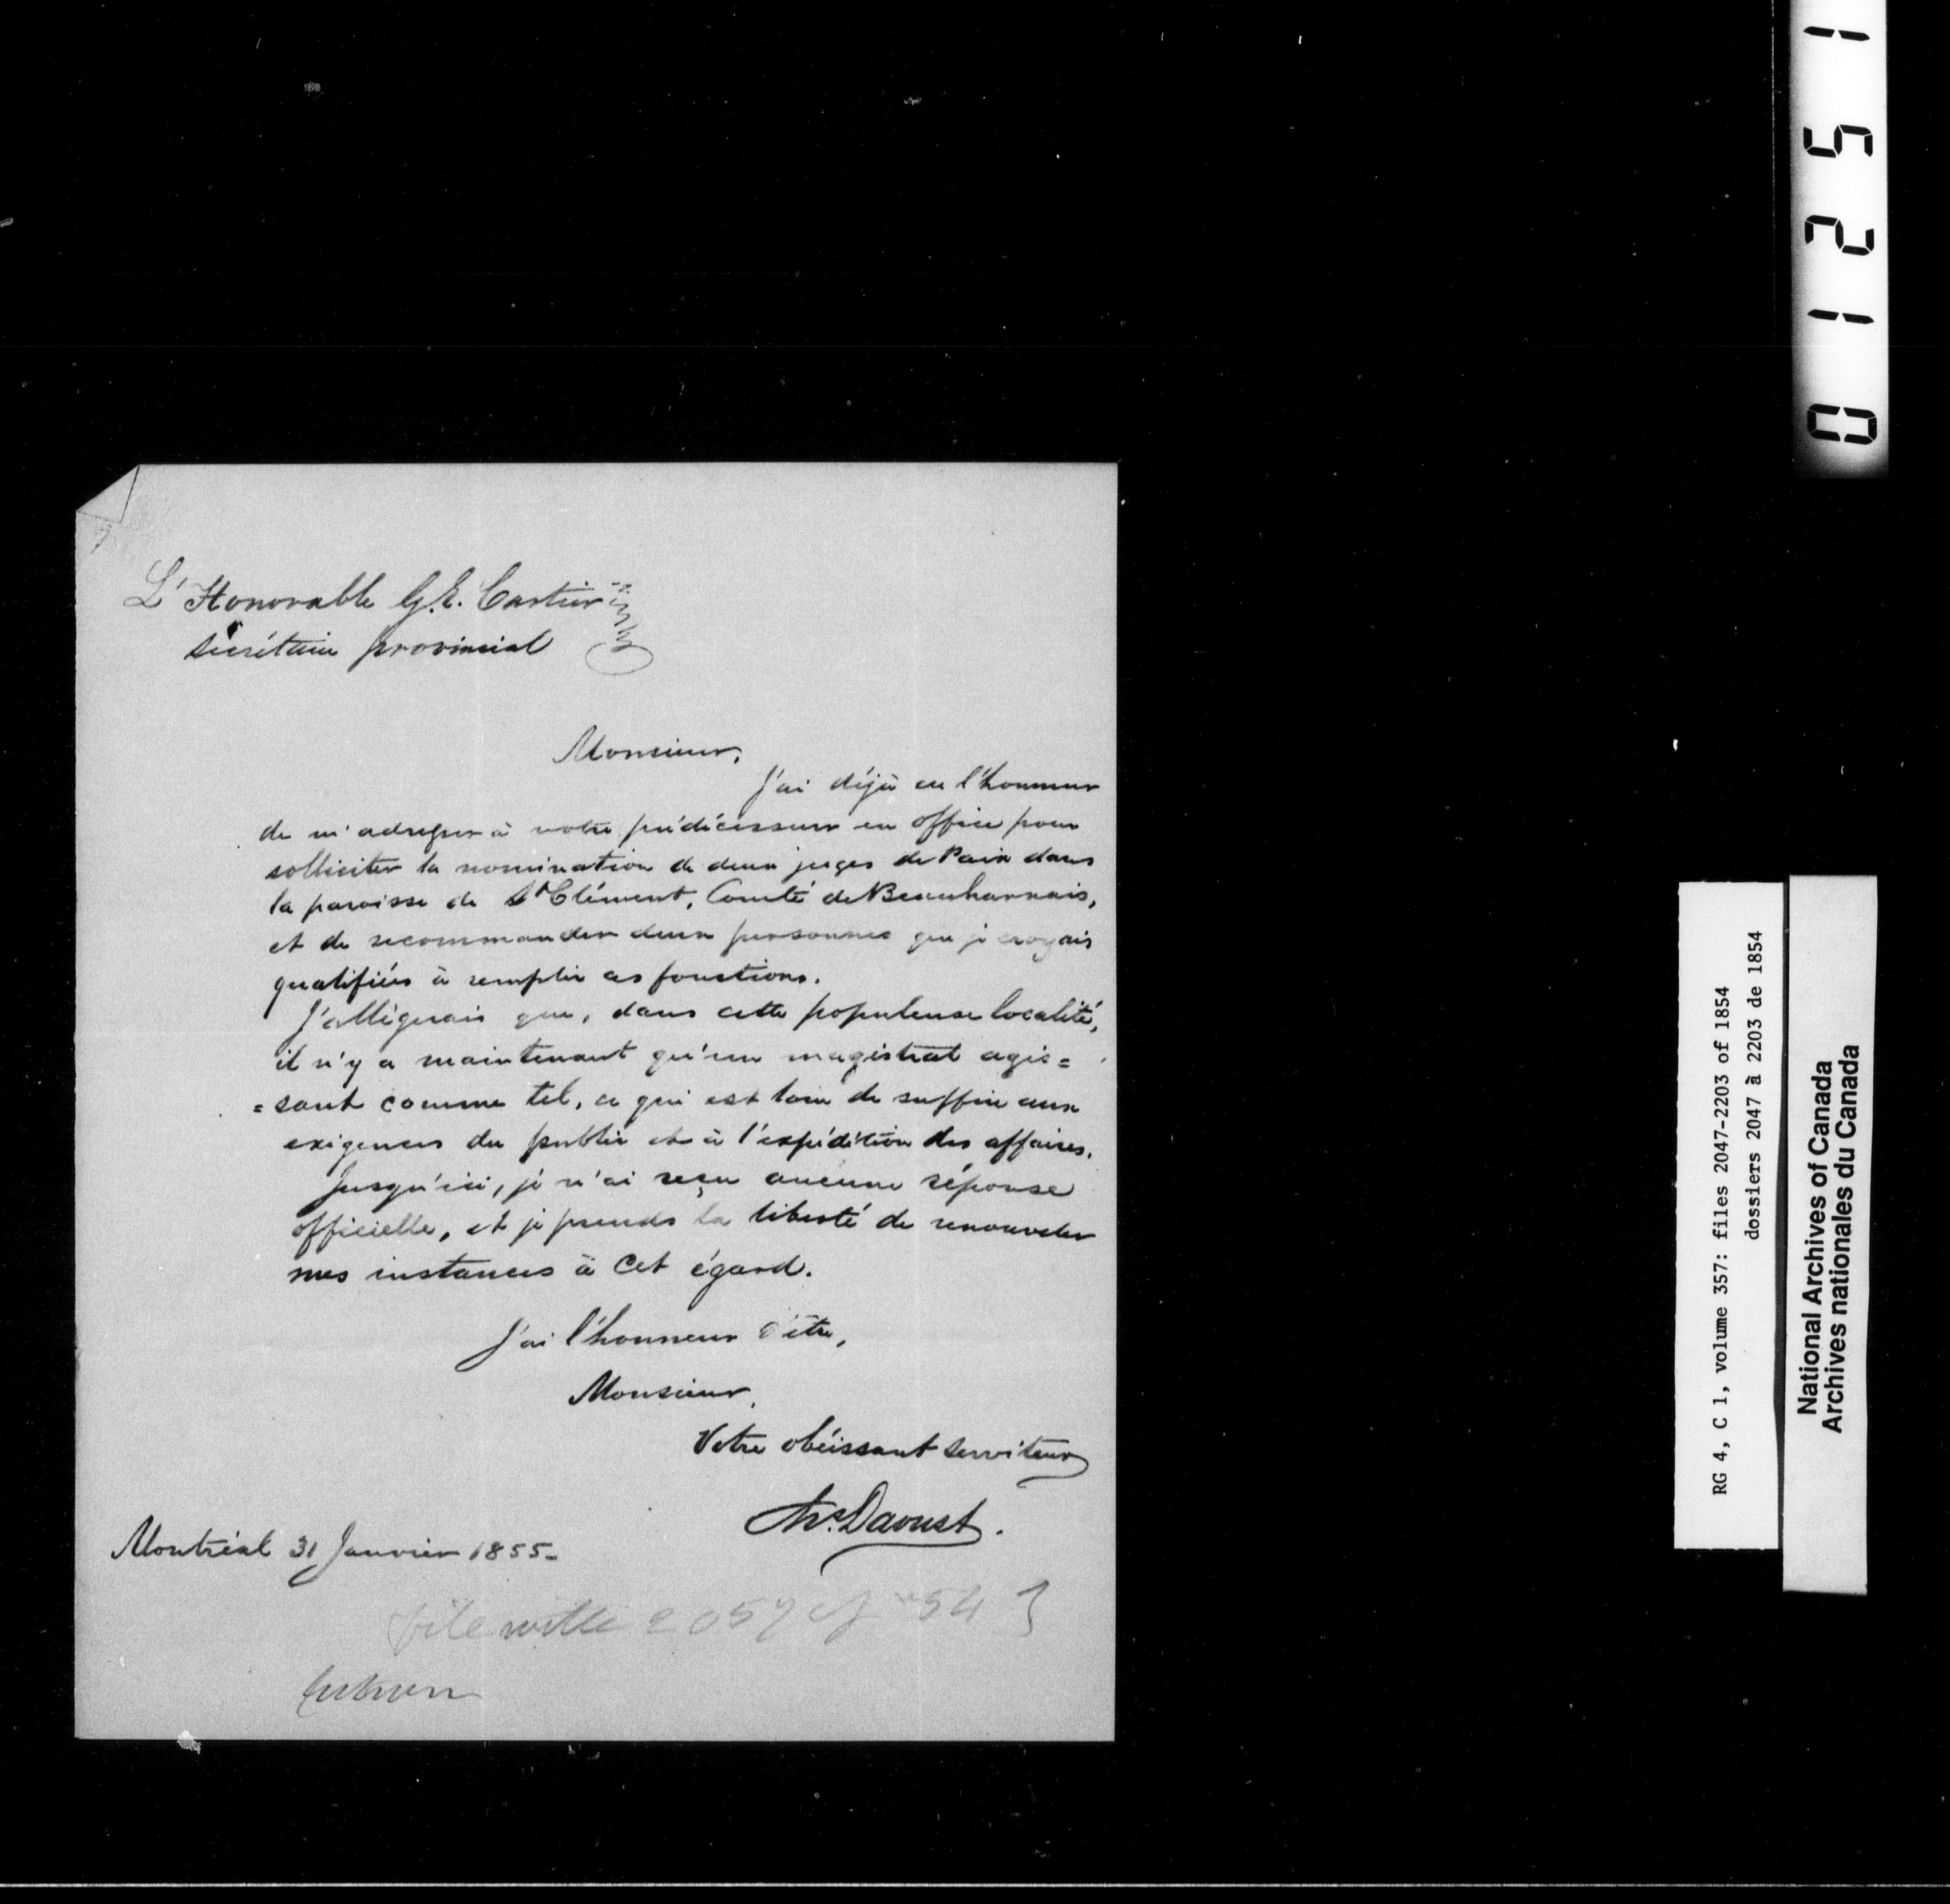 L'Honorable G. E. Cartier
Secrétaire provincial
Monsieur,
J'ai déjà eu l'honneur
de m'adresser à votre prédécesseur en office pour
solliciter la nomination de deux juges de Paix dans
la paroisse de St Clément, Comté de Beauharnais,
et de recommander deux personnes que je croyais
qualifiées à remplir ces fonctions.
J'alléguais que, dans cette populeuse localité,
il n'y a maintenant qu'un magistrat agis=
=sant comme tel, ce qui est loin de suffire aux
exigences du public et à l'expédition des affaires.
Jusqu'ici, je n'ai reçu aucune réponse
officielle, et je prends la liberté de renouveler
mes instances à cet égard.
J'ai l'honneur d'être,
Monsieur,
Votre obéissant serviteur
Chs. Daoust.
Montréal 31 Janvier 1855.
file with 2057 of 54
01251
RG 4, C 1, volume 357: files 2047-2203 of 1854
dossiers 2047 à 2203 de 1854
National Archives of Canada
Archives nationales du Canada